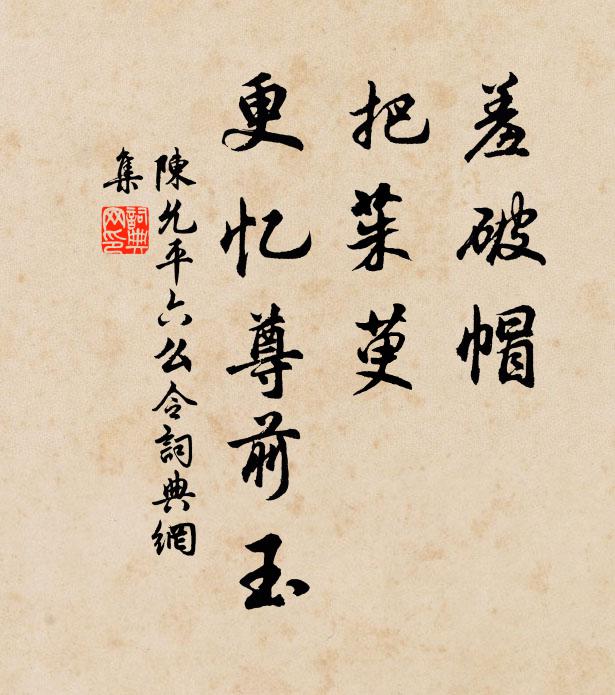 羞破帽
把茱萸
更忆尊前玉
陳允平六么令詞典網
集
詞典
网印